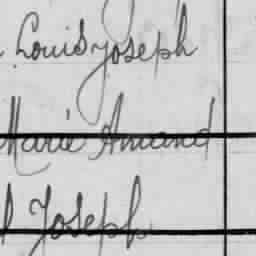 Louis Joseph
Marie Amand
Joseph